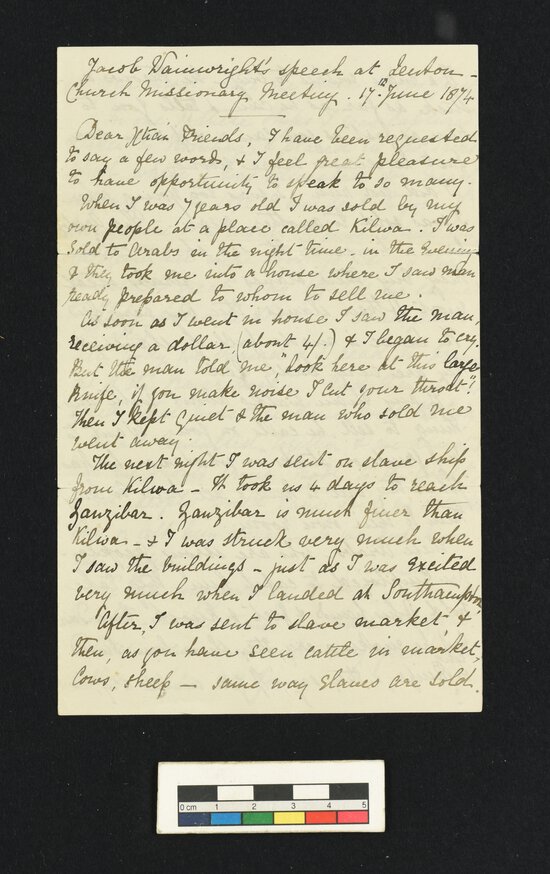 Jacob Wainwright's speech at Lenton -
Church Missionary Meeting. 17th June 1874
Dear Xtian Friends, I have been requested
to say a few words, & I feel great pleasure
to have opportunity to speak to so many.
When I was 7 years old I was sold by my
own people at a place called Kilwa. I was
sold to Arabs in the night time - in the Evening
& they took me into a house where I saw men
ready prepared to whom to sell me.
As soon as I went in house I saw the man,
receiving a dollar (about 4/.) & I began to cry.
But the man told me, "Look here at this large
Knife, if you make noise I cut your throat".
Then I kept quiet & the man who sold me
went away.
The next night I was sent on slave ship
from Kilwa - It took us 4 days to reach
Zanzibar. Zanzibar is much finer than
Kilwa - & I was struck very much when
I saw the buildings - just as I was excited
very much when I landed at Southampton.
After, I was sent to slave market, &
then, as you have seen cattle in market,
Cows, sheep - same way Slaves are sold.
0 cm 1 2 3 4 5